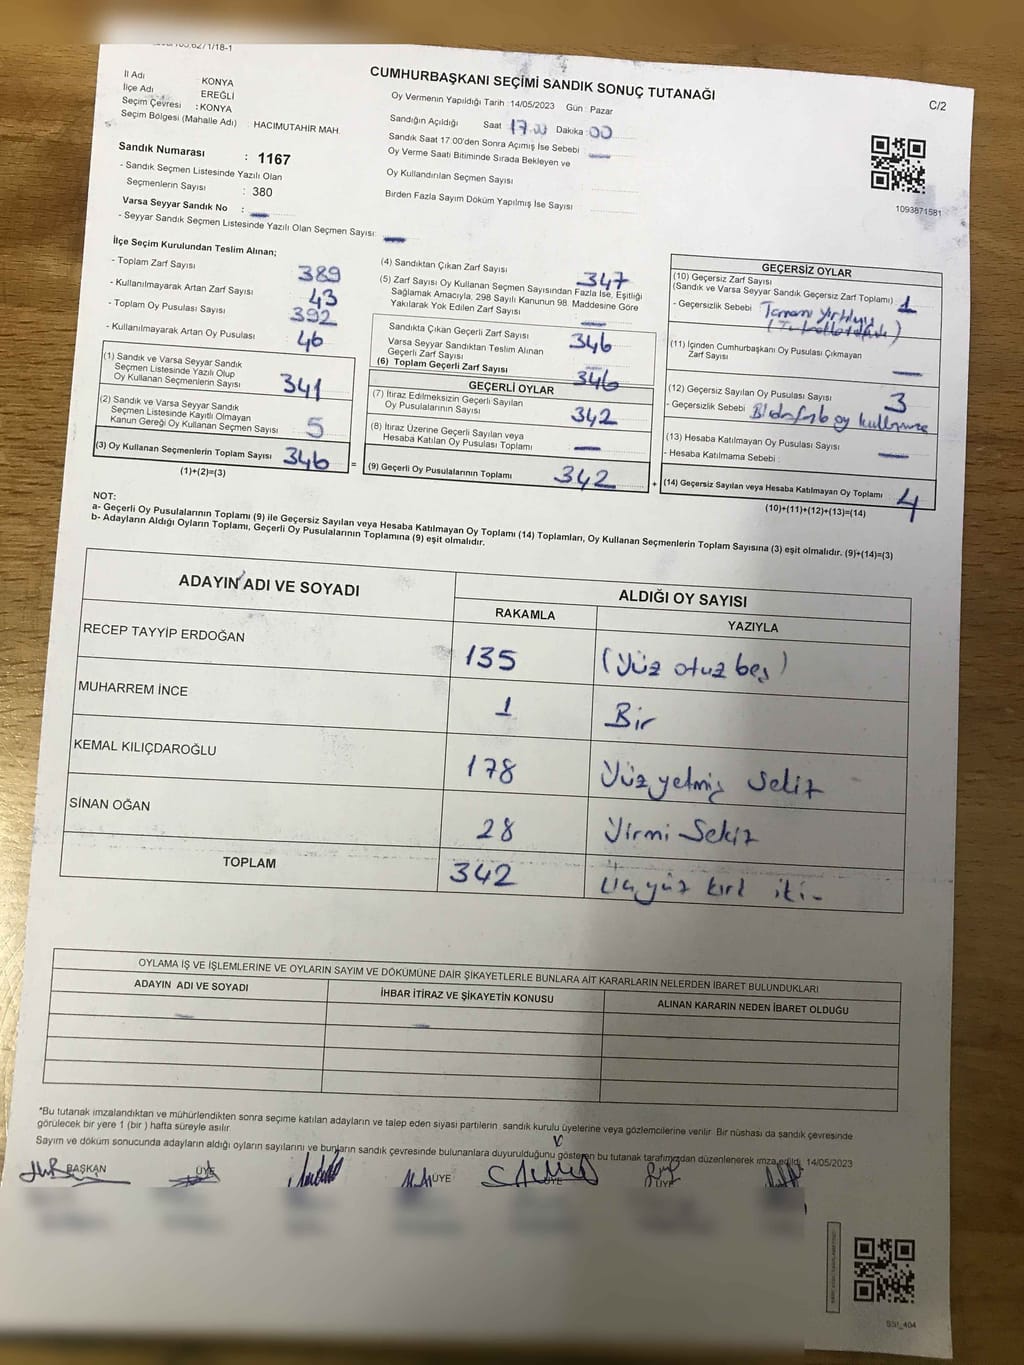 CUMHURBAŞKANI SEÇİMİ SANDIK SONUÇ TUTANAĞI
C/2
İl Adı : KONYA
İlçe Adı : EREĞLİ
Seçim Çevresi : KONYA
Seçim Bölgesi (Mahalle Adı) : HACIMUTAHİR MAH.
Sandık Numarası : 1167
- Sandık Seçmen Listesinde Yazılı Olan
Seçmenlerin Sayısı : 380
Varsa Seyyar Sandık No : —
- Seyyar Sandık Seçmen Listesinde Yazılı Olan Seçmen Sayısı: —
Oy Vermenin Yapıldığı Tarih : 14/05/2023 Gün : Pazar
Sandığın Açıldığı Saat 17.00 Dakika : 00
Sandık Saat 17:00'den Sonra Açımış İse Sebebi : —
Oy Verme Saati Bitiminde Sırada Bekleyen ve
Oy Kullandırılan Seçmen Sayısı
Birden Fazla Sayım Döküm Yapılmış İse Sayısı
1093871581
İlçe Seçim Kurulundan Teslim Alınan;
- Toplam Zarf Sayısı 389
- Kullanılmayarak Artan Zarf Sayısı 43
- Toplam Oy Pusulası Sayısı 392
- Kullanılmayarak Artan Oy Pusulası 46
(1) Sandık ve Varsa Seyyar Sandık
Seçmen Listesinde Yazılı Olup
Oy Kullanan Seçmenlerin Sayısı 341
(2) Sandık ve Varsa Seyyar Sandık
Seçmen Listesinde Kayıtlı Olmayan
Kanun Gereği Oy Kullanan Seçmen Sayısı 5
(3) Oy Kullanan Seçmenlerin Toplam Sayısı 346
(1)+(2)=(3)
(4) Sandıktan Çıkan Zarf Sayısı 347
(5) Zarf Sayısı Oy Kullanan Seçmen Sayısından Fazla İse, Eşitliği
Sağlamak Amacıyla, 298 Sayılı Kanunun 98. Maddesine Göre
Yakılarak Yok Edilen Zarf Sayısı —
Sandıkta Çıkan Geçerli Zarf Sayısı 346
Varsa Seyyar Sandıktan Teslim Alınan
Geçerli Zarf Sayısı —
(6) Toplam Geçerli Zarf Sayısı 346
=
GEÇERLİ OYLAR
(7) İtiraz Edilmeksizin Geçerli Sayılan
Oy Pusulalarının Sayısı 342
(8) İtiraz Üzerine Geçerli Sayılan veya
Hesaba Katılan Oy Pusulası Toplamı —
(9) Geçerli Oy Pusulalarının Toplamı 342
+
GEÇERSİZ OYLAR
(10) Geçersiz Zarf Sayısı
(Sandık ve Varsa Seyyar Sandık Geçersiz Zarf Toplamı) 1
- Geçersizlik Sebebi : Tamamı yırtılmış
(11) İçinden Cumhurbaşkanı Oy Pusulası Çıkmayan
Zarf Sayısı —
(12) Geçersiz Sayılan Oy Pusulası Sayısı 3
- Geçersizlik Sebebi : oy kullanma
(13) Hesaba Katılmayan Oy Pusulası Sayısı —
- Hesaba Katılmama Sebebi :
(14) Geçersiz Sayılan veya Hesaba Katılmayan Oy Toplamı 4
(10)+(11)+(12)+(13)=(14)
NOT:
a- Geçerli Oy Pusulalarının Toplamı (9) ile Geçersiz Sayılan veya Hesaba Katılmayan Oy Toplamı (14) Toplamları, Oy Kullanan Seçmenlerin Toplam Sayısına (3) eşit olmalıdır. (9)+(14)=(3)
b- Adayların Aldığı Oyların Toplamı, Geçerli Oy Pusulalarının Toplamına (9) eşit olmalıdır.
ADAYIN ADI VE SOYADI
ALDIĞI OY SAYISI
RAKAMLA YAZIYLA
RECEP TAYYİP ERDOĞAN 135 (Yüz otuz beş)
MUHARREM İNCE 1 Bir
KEMAL KILIÇDAROĞLU 178 Yüz yetmiş sekiz
SİNAN OĞAN 28 Yirmi Sekiz
TOPLAM 342 Üç yüz kırk iki -
OYLAMA İŞ VE İŞLEMLERİNE VE OYLARIN SAYIM VE DÖKÜMÜNE DAİR ŞİKAYETLERLE BUNLARA AİT KARARLARIN NELERDEN İBARET BULUNDUKLARI
ADAYIN ADI VE SOYADI İHBAR İTİRAZ VE ŞİKAYETİN KONUSU ALINAN KARARIN NEDEN İBARET OLDUĞU
*Bu tutanak imzalandıktan ve mühürlendikten sonra seçime katılan adayların ve talep eden siyasi partilerin sandık kurulu üyelerine veya gözlemcilerine verilir. Bir nüshası da sandık çevresinde
görülecek bir yere 1 (bir) hafta süreyle asılır.
Sayım ve döküm sonucunda adayların aldığı oyların sayılarını ve bunların sandık çevresinde bulunanlara duyurulduğunu gösteren bu tutanak tarafımızdan düzenlenerek imza edildi. 14/05/2023
BAŞKAN ÜYE ÜYE ÜYE ÜYE
SSI_404